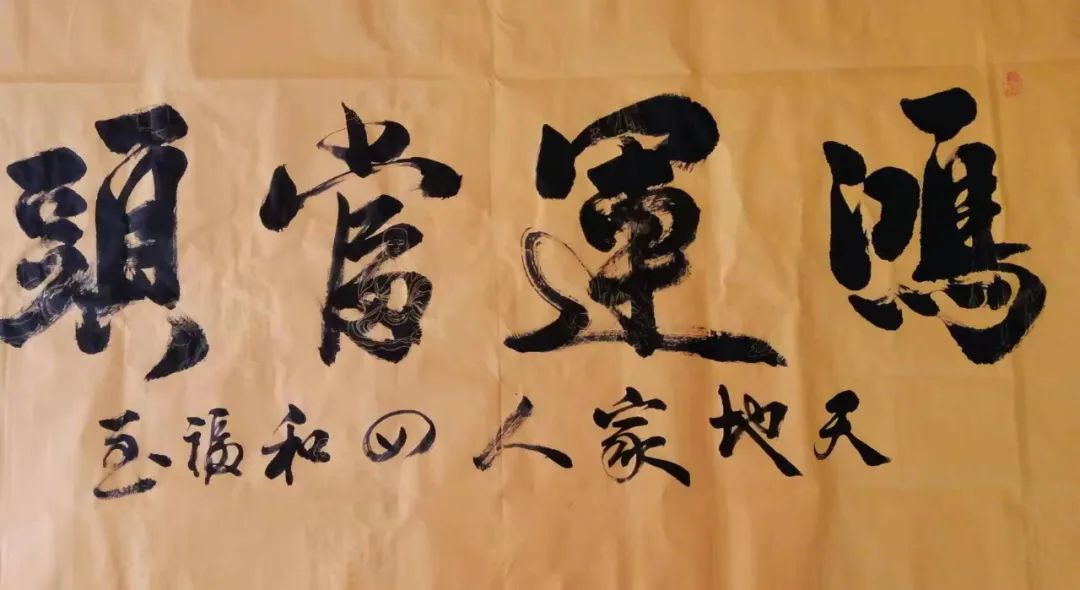 鴻運當頭
天地家人四和福至